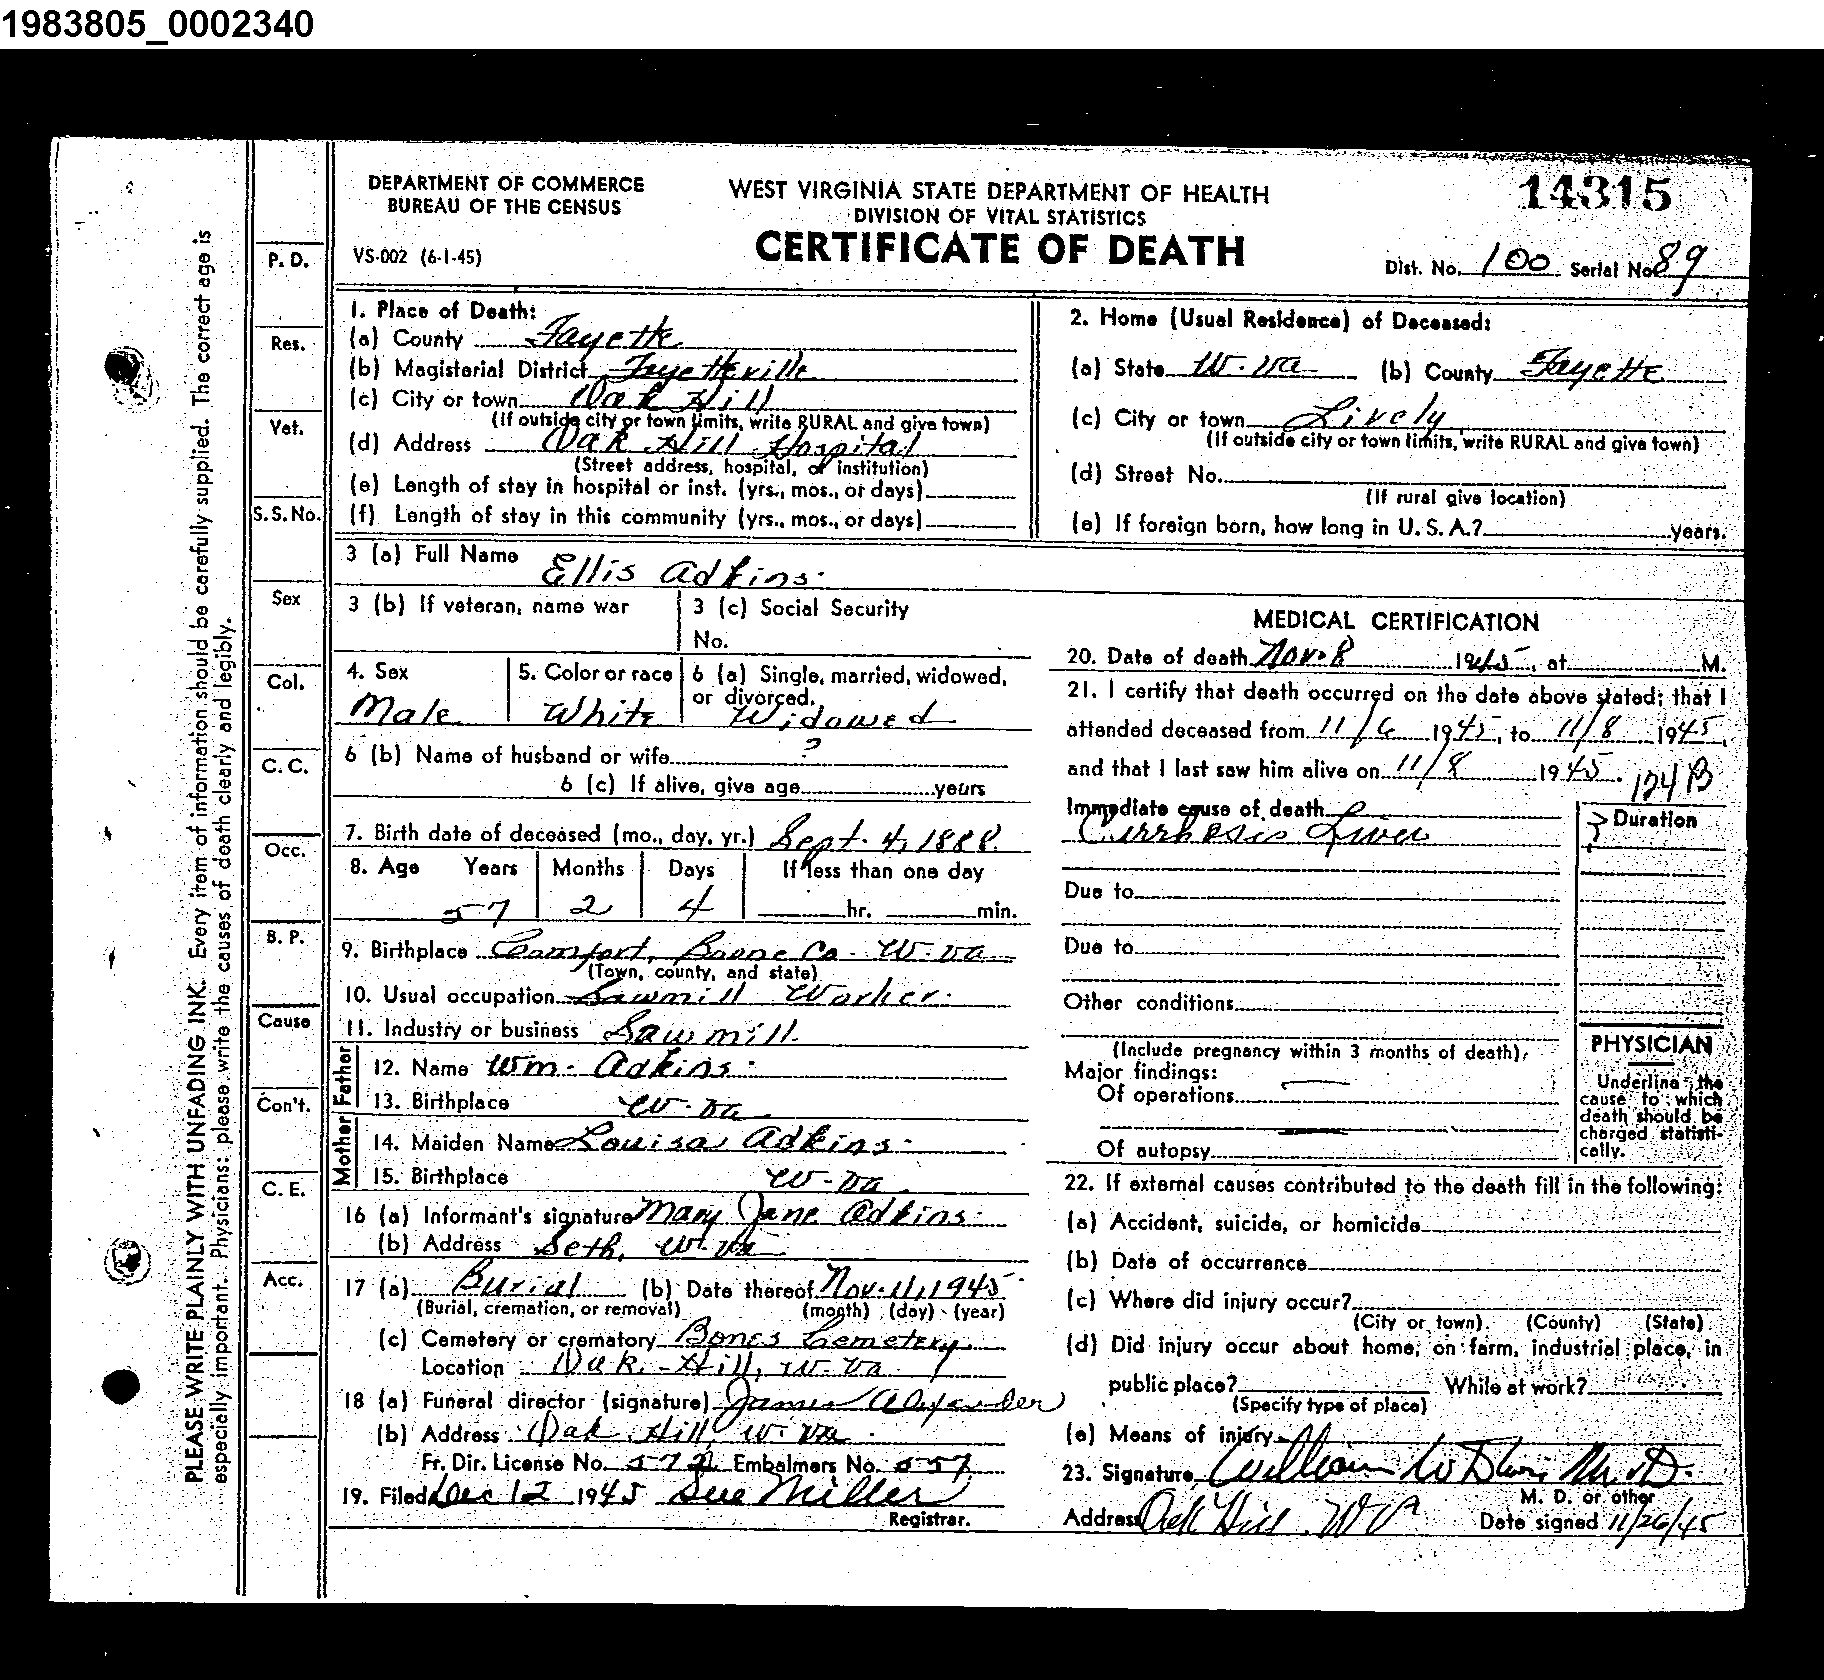 1983805_0002340
DEPARTMENT OF COMMERCE
BUREAU OF THE CENSUS
VS-002 (6-1-45)
WEST VIRGINIA STATE DEPARTMENT OF HEALTH
DIVISION OF VITAL STATISTICS
CERTIFICATE OF DEATH
14315
Dist. No. 100 Serial No. 89
PLEASE WRITE PLAINLY WITH UNFADING INK. Every item of information should be carefully supplied. The correct age is
especially important. Physicians: please write the causes of death clearly and legibly.
P. D.
Res.
Vet.
S. S. No.
Sex
Col.
C. C.
Occ.
B. P.
Cause
Con't.
C. E.
Acc.
1. Place of Death:
(a) County Fayette
(b) Magisterial District Fayetteville
(c) City or town Oak Hill
(If outside city or town limits, write RURAL and give town)
(d) Address Oak Hill Hospital
(Street address, hospital, or institution)
(e) Length of stay in hospital or inst. (yrs., mos., or days)
(f) Length of stay in this community (yrs., mos., or days)
2. Home (Usual Residence) of Deceased:
(a) State W. Va (b) County Fayette
(c) City or town Lively
(If outside city or town limits, write RURAL and give town)
(d) Street No.
(If rural give location)
(e) If foreign born, how long in U. S. A.? years.
3 (a) Full Name Ellis Adkins.
3 (b) If veteran, name war
3 (c) Social Security
No.
4. Sex
Male
5. Color or race
White
6 (a) Single, married, widowed,
or divorced.
Widowed
6 (b) Name of husband or wife ?
6 (c) If alive, give age years
7. Birth date of deceased (mo., day, yr.) Sept. 4, 1888.
8. Age Years Months Days If less than one day
57 2 4 hr. min.
9. Birthplace Comfort, Boone Co. W. Va
(Town, county, and state)
10. Usual occupation Sawmill Worker.
11. Industry or business Sawmill.
Father
12. Name Wm. Adkins.
13. Birthplace W. Va
Mother
14. Maiden Name Louisa Adkins.
15. Birthplace W. Va
16 (a) Informant's signature Mary Jane Adkins.
(b) Address Seth, W. Va
17 (a) Burial (b) Date thereof Nov. 11, 1945
(Burial, cremation, or removal) (month) (day) (year)
(c) Cemetery or crematory Bones Cemetery
Location Oak-Hill, W. Va.
18 (a) Funeral director (signature) James Alexander
(b) Address Oak Hill, W. Va.
Fr. Dir. License No. Embalmers No. 557
19. Filed Dec 12 1945 Sue Miller
Registrar.
MEDICAL CERTIFICATION
20. Date of death Nov. 8 1945, at M.
21. I certify that death occurred on the date above stated; that I
attended deceased from 11/6 1945, to 11/8 1945,
and that I last saw him alive on 11/8 1945.
124B
Immediate cause of death
Cirrhosis Liver
Duration
?
Due to
Due to
Other conditions
(Include pregnancy within 3 months of death)
Major findings:
Of operations
Of autopsy
PHYSICIAN
Underline the
cause to which
death should be
charged statisti-
cally.
22. If external causes contributed to the death fill in the following:
(a) Accident, suicide, or homicide
(b) Date of occurrence
(c) Where did injury occur?
(City or town) (County) (State)
(d) Did injury occur about home, on farm, industrial place, in
public place? While at work?
(Specify type of place)
(e) Means of injury
23. Signature William M. D.
M. D. or other
Address Oak Hill, W Va Date signed 11/26/45